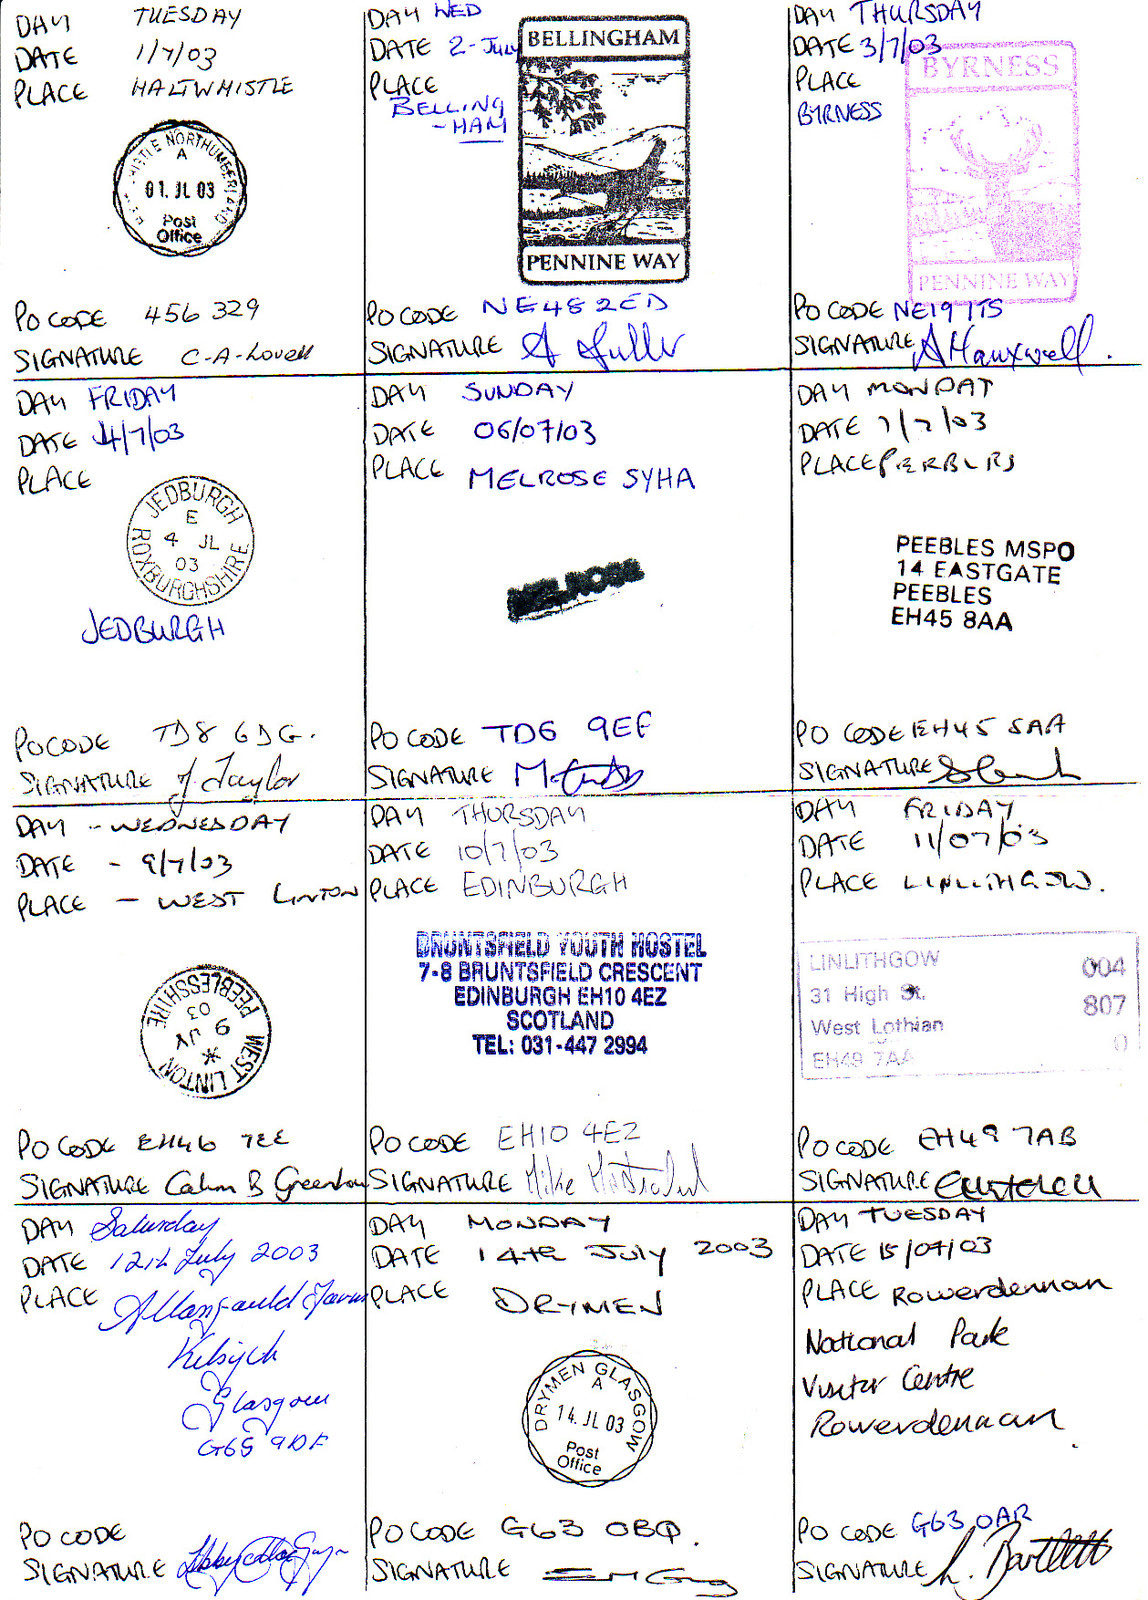 DAY TUESDAY
DATE 1/7/03
PLACE HALTWHISTLE
NORTHUMBERLAND
A
01. JL 03
Post
Office
PO CODE 456 329
SIGNATURE C-A-Lovell
DAY WED
DATE 2-July
PLACE
BELLING
-HAM
BELLINGHAM
PENNINE WAY
PO CODE NE48 2ED
SIGNATURE
DAY THURSDAY
DATE 3/7/03
PLACE
BYRNESS
BYRNESS
PENNINE WAY
PO CODE NE19 1TS
SIGNATURE
DAY FRIDAY
DATE 4/7/03
PLACE
JEDBURGH
E
4 JL
03
ROXBURGHSHIRE
JEDBURGH
PO CODE TD8 6DG.
SIGNATURE J. Taylor
DAY SUNDAY
DATE 06/07/03
PLACE MELROSE SYHA
MELROSE
PO CODE TD6 9EF
SIGNATURE
DAY MONDAY
DATE 7/7/03
PLACE
PEEBLES MSPO
14 EASTGATE
PEEBLES
EH45 8AA
PO CODE EH45 8AA
SIGNATURE
DAY - WEDNESDAY
DATE - 9/7/03
PLACE - WEST LINTON
WEST LINTON
*
9 JY
03
PEEBLESSHIRE
PO CODE EH46 7EE
SIGNATURE Calum B Greenhow
DAY THURSDAY
DATE 10/7/03
PLACE EDINBURGH
BRUNTSFIELD YOUTH HOSTEL
7-8 BRUNTSFIELD CRESCENT
EDINBURGH EH10 4EZ
SCOTLAND
TEL: 031-447 2994
PO CODE EH10 4EZ
SIGNATURE Mike
DAY FRIDAY
DATE 11/07/03
PLACE LINLITHGOW.
LINLITHGOW 004
31 High St. 807
West Lothian 0
EH49 7AA
PO CODE EH49 7AB
SIGNATURE
DAY Saturday
DATE 12th July 2003
PLACE Allanfauld Farm
Kilsyth
Glasgow
G65 9DF
PO CODE
SIGNATURE
DAY MONDAY
DATE 14th July 2003
PLACE DRYMEN
DRYMEN GLASGOW
A
14. JL 03
Post
Office
PO CODE G63 0BQ.
SIGNATURE
DAY TUESDAY
DATE 15/07/03
PLACE Rowerdennan
National Park
Visitor Centre
Rowerdennan
PO CODE G63 0AR
SIGNATURE L. Bartlett